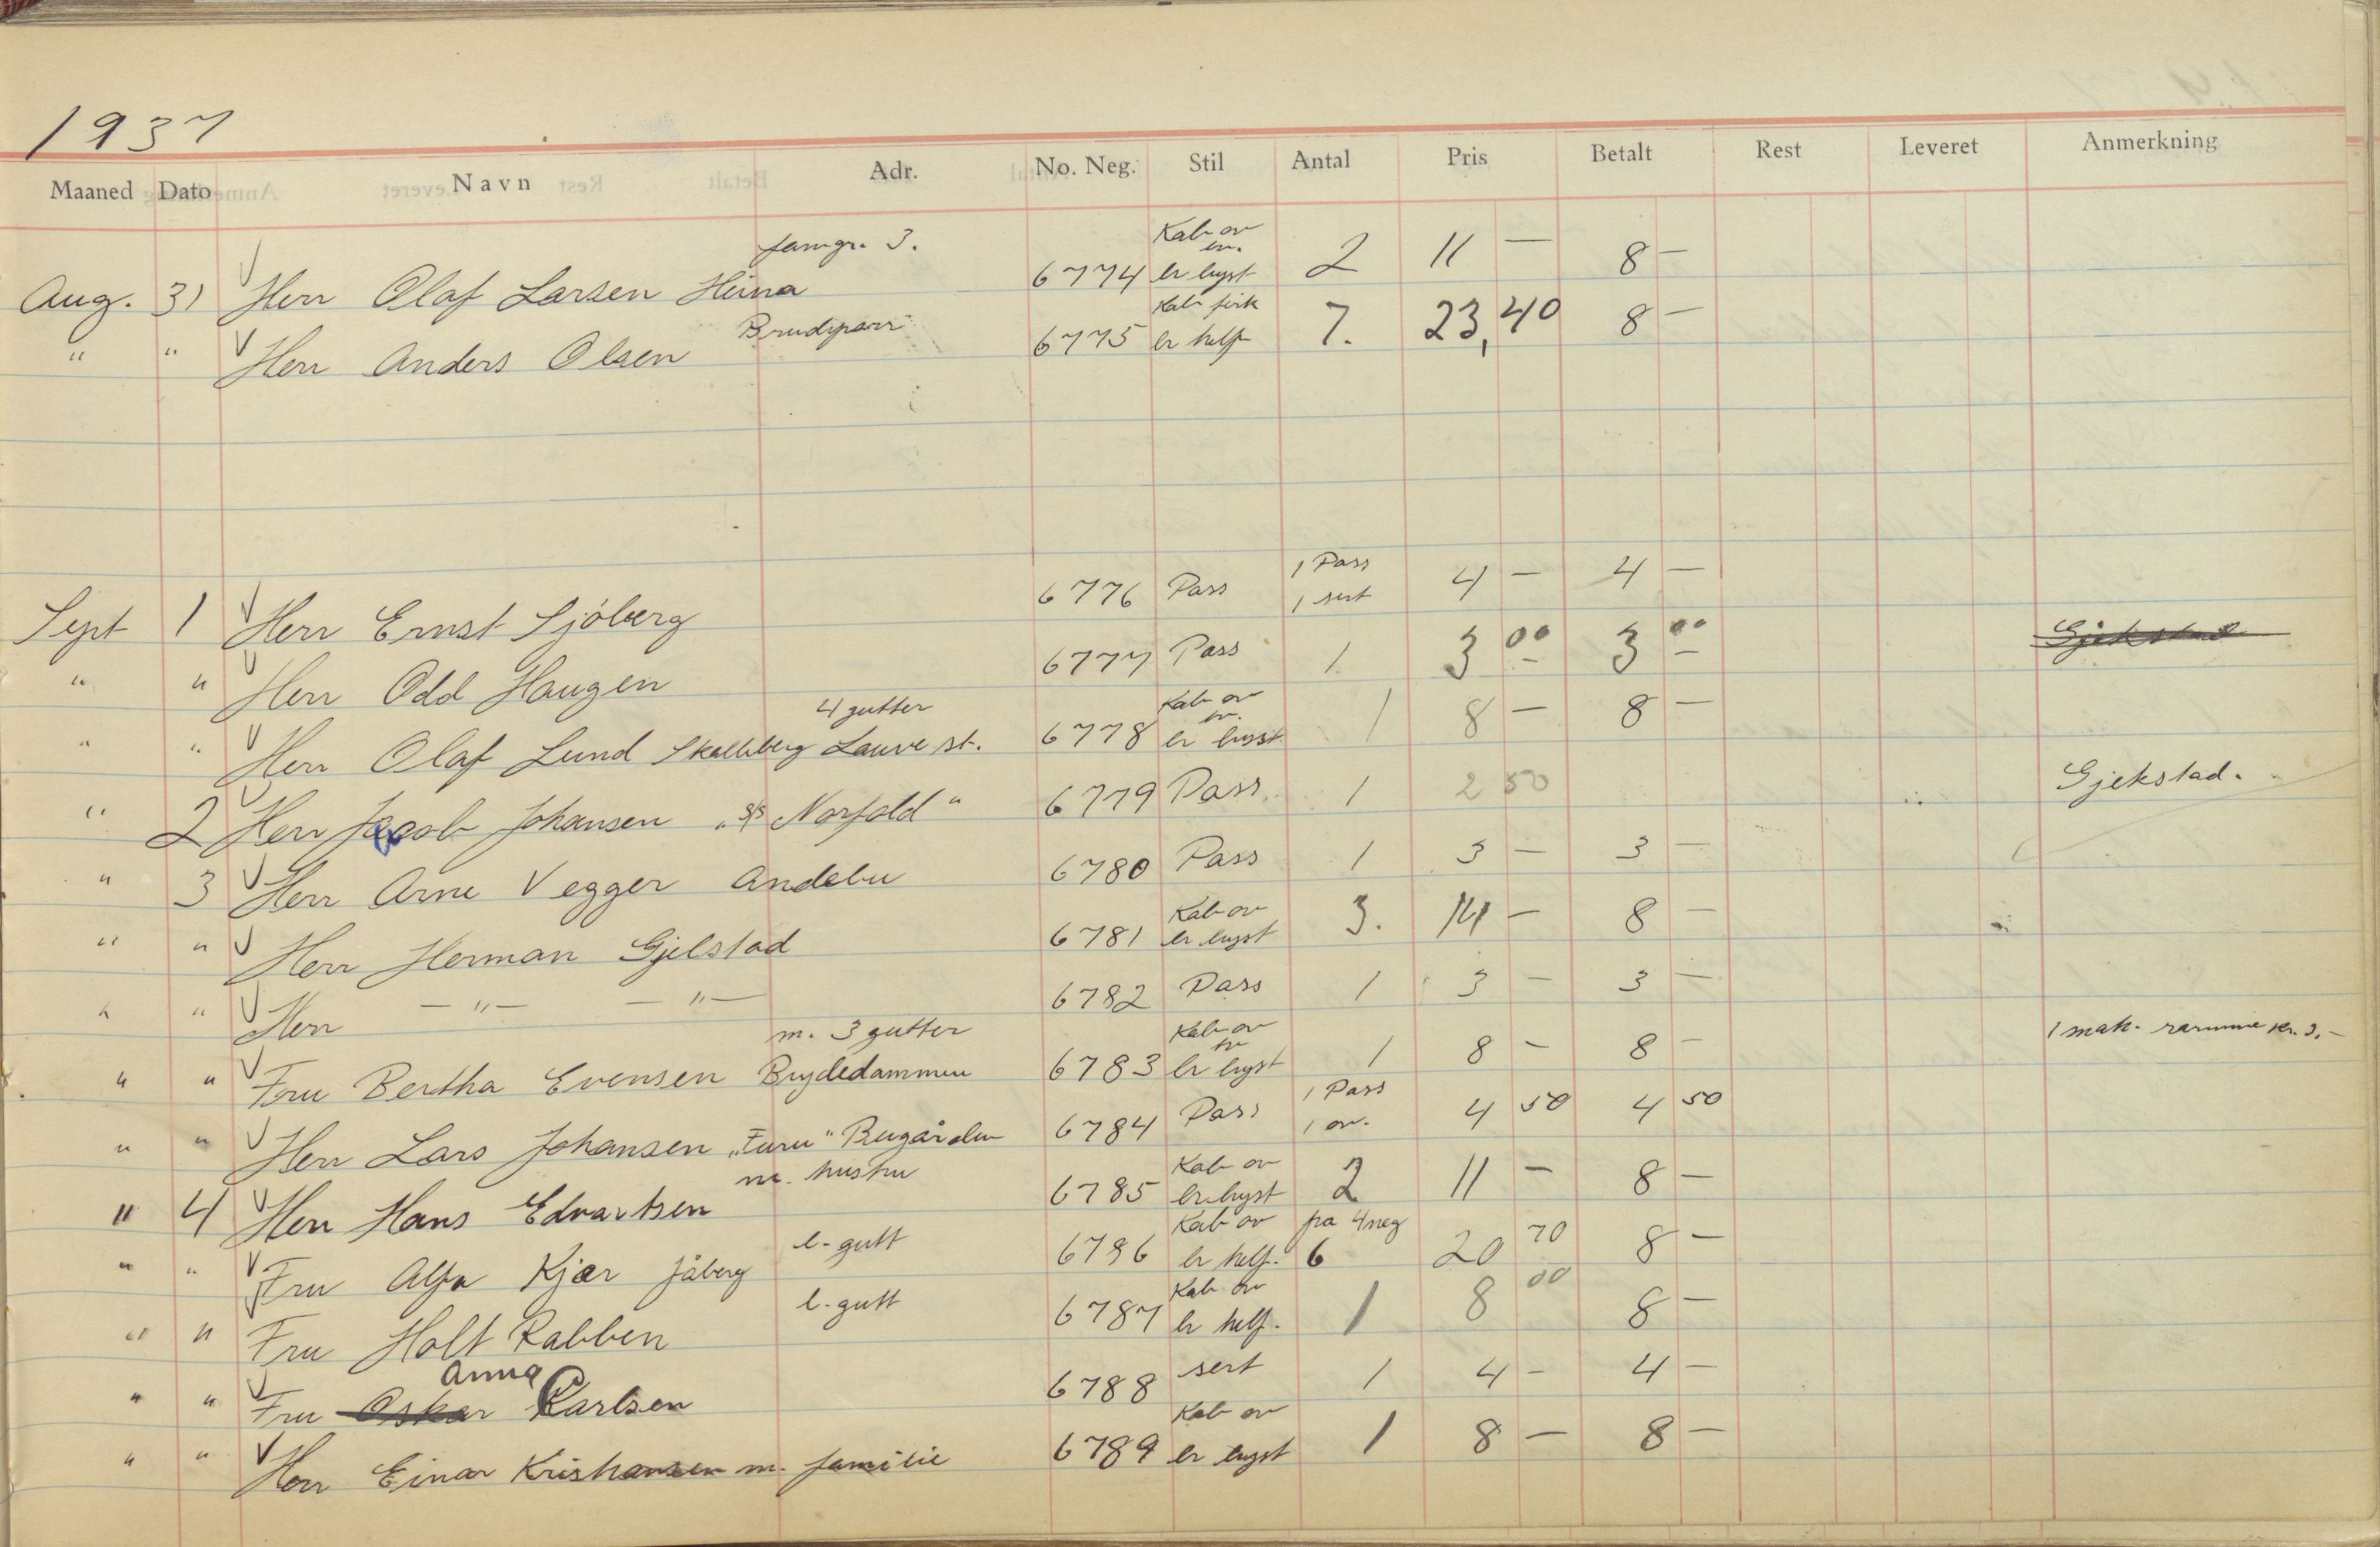 1937
Maaned Dato Navn Adr. No. Neg. Stil Antal Pris Betalt Rest Leveret Anmerkning
famgr. 3. Kab ov
Aug. 31 Herr Olaf Larsen Heina 6774 br lyst 2 11 — 8 —
Brudepar Kab
" " Herr Anders Olsen 6775 br helf 7. 23,40 8 —
1 Pass
Sept 1 Herr Ernst Sjöberg 6776 Pass 1 sert 4 — 4 —
" " Herr Odd Haugen 6777 Pass 1 3 00 3 00 Gjekstad
4 gutter Kab ov
" " Herr Olaf Lund Skalleberg Lauve st. 6778 br lyst 1 8 — 8 —
" 2 Herr Jacob Johansen "s/s Norfold" 6779 Pass 1 2 50 Gjekstad.
" 3 Herr Arne Vegger Andebu 6780 Pass 1 3 — 3 —
Kab ov
" " Herr Herman Gjelstad 6781 br lyst 3. 14 — 8 —
" " Herr — " — — " — 6782 Pass 1 3 — 3 —
m. 3 gutter Kab ov
" " Fru Bertha Evensen Brydedammen 6783 br lyst 1 8 — 8 — 1 mah. ramme kr. 3.—
1 Pass
" " Herr Lars Johansen "Furu" Bugården 6784 Pass 1 ov. 4 50 4 50
m. hustru Kab ov
" 4 Herr Hans Edvartsen 6785 br lyst 2 11 — 8 —
l. gutt Kab ov fra 4 neg
" " Fru Alfa Kjær Jåberg 6786 br helf. 6 20 70 8 —
l. gutt Kab ov
" " Fru Holt Rabben 6787 br helf. 1 8 00 8 —
Anna
" " Fru Oskar Carlsen 6788 sert 1 4 — 4 —
Kab ov
" " Herr Einar Kristiansen m. familie 6789 br lyst 1 8 — 8 —